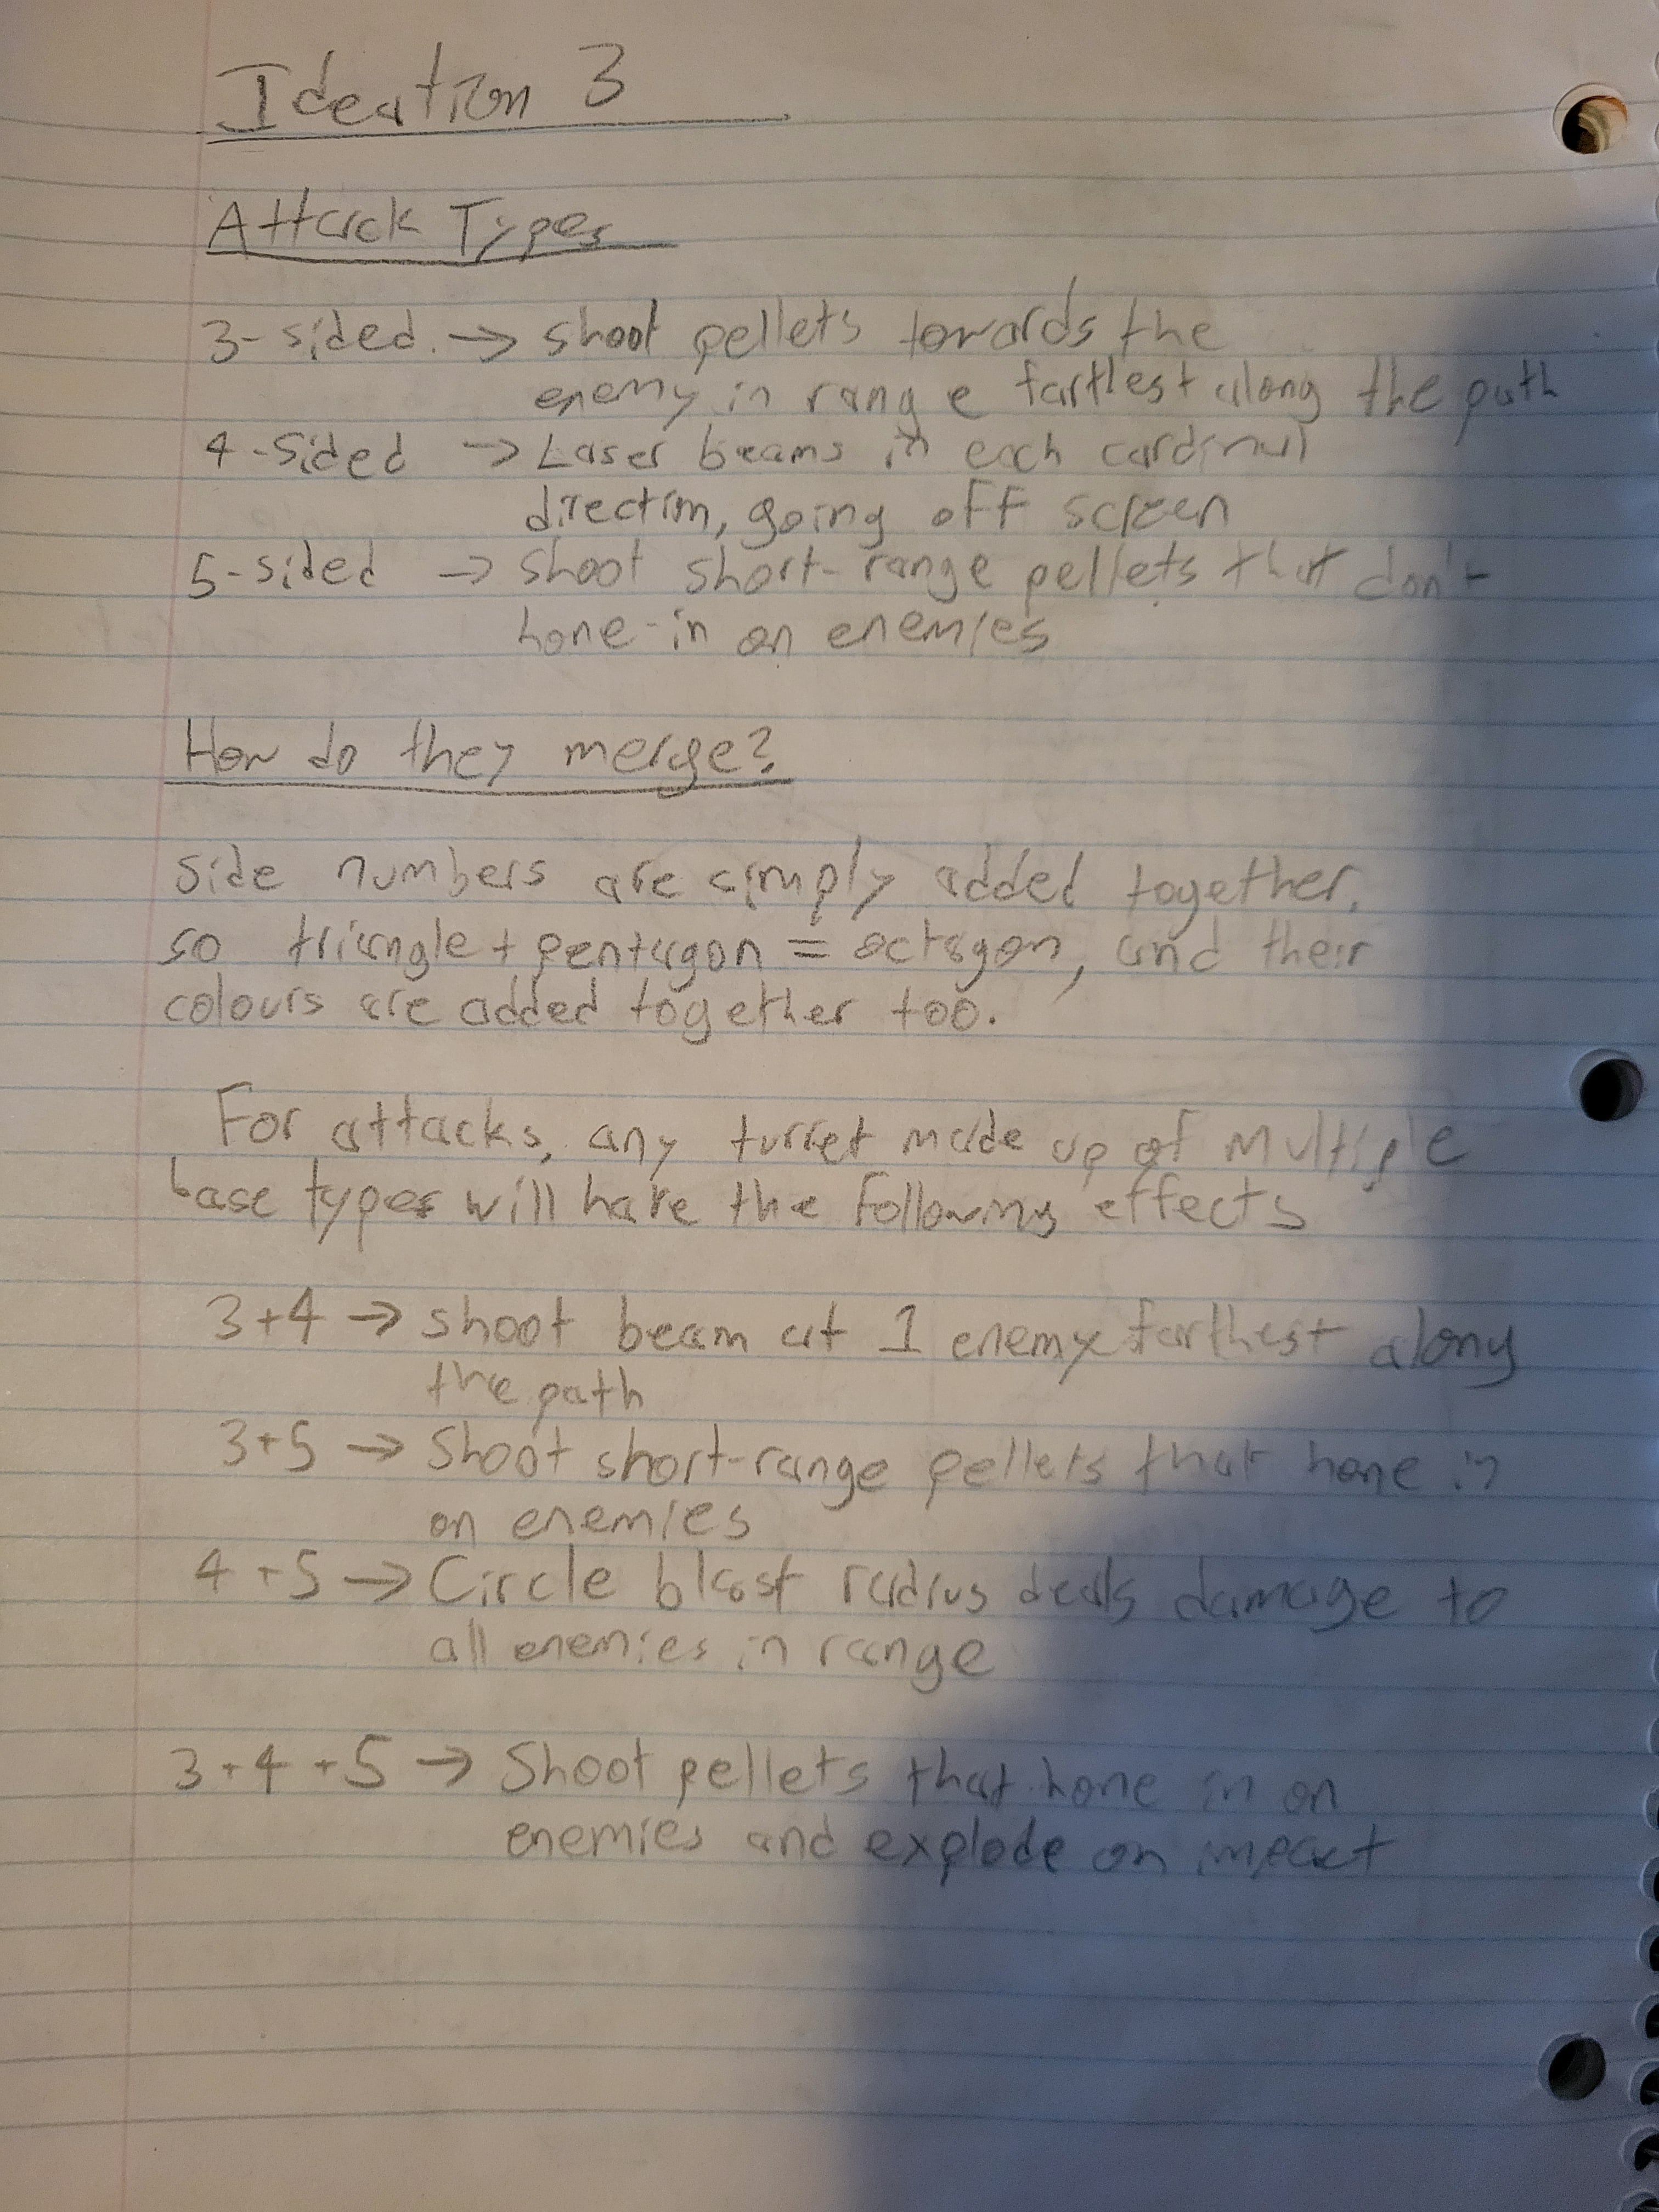 Ideation 3
Attack Types
3-sided. → shoot pellets towards the
enemy in range farthest along the path
4-sided → Laser beams in each cardinal
direction, going off screen
5-sided → shoot short-range pellets that don't
hone-in on enemies
How do they merge?
side numbers are simply added together,
so triangle + pentagon = octagon, and their
colours are added together too.
For attacks, any turret made up of multiple
base types will have the following effects
3+4 → shoot beam at 1 enemy farthest along
the path
3+5 → Shoot short-range pellets that hone in
on enemies
4+5 → Circle blast radius deals damage to
all enemies in range
3+4+5 → Shoot pellets that hone in on
enemies and explode on impact